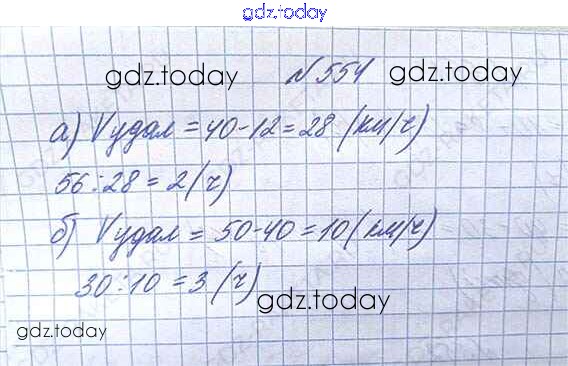 gdz.today
gdz.today №554 gdz.today
а) Vудал = 40-12 = 28 (км/ч)
56:28 = 2 (ч)
б) Vудал = 50-40 = 10 (км/ч)
30:10 = 3 (ч)
gdz.today
gdz.today